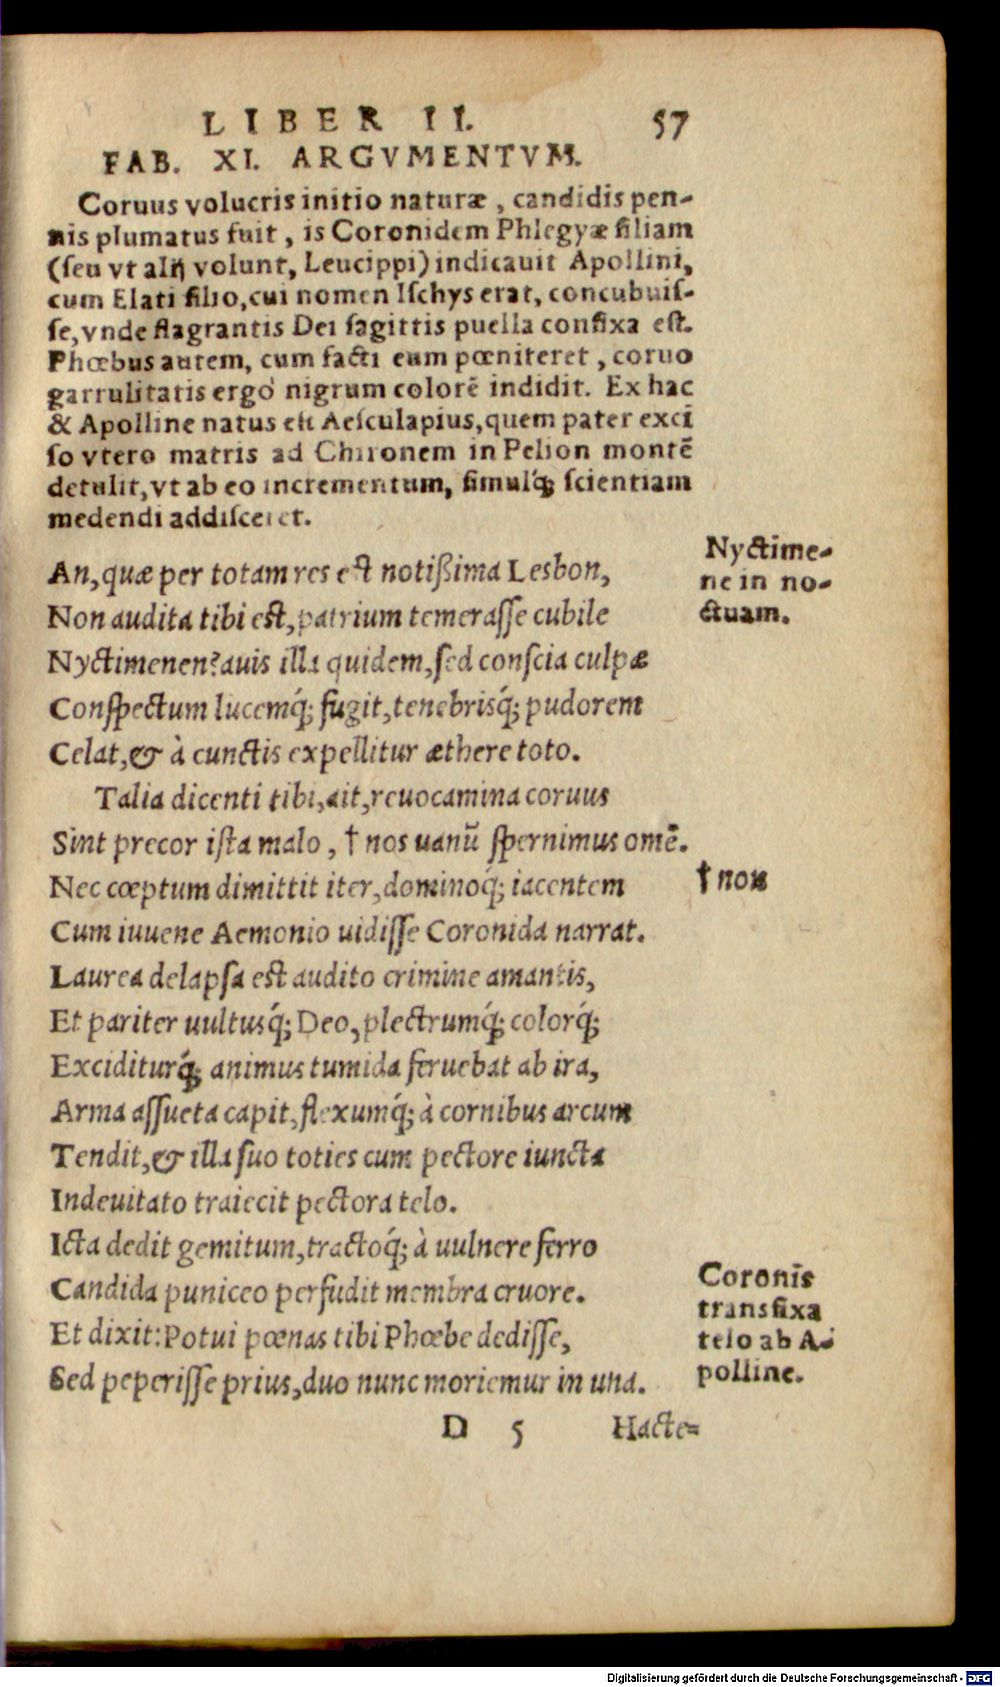 LIBER II. 57
FAB. XI. ARGVMENTVM.
Coruus volucris initio naturæ, candidis pen-
nis plumatus fuit, is Coronidem Phlegyæ filiam
(seu vt alij volunt, Leucippi) indicauit Apollini,
cum Elati filio, cui nomen Ischys erat, concubuis-
se, vnde flagrantis Dei sagittis puella confixa est.
Phœbus autem, cum facti eum pœniteret, coruo
garrulitatis ergò nigrum colorē indidit. Ex hac
& Apolline natus est Aesculapius, quem pater exci
so vtero matris ad Chironem in Pelion montē
detulit, vt ab eo incrementum, simulq́; scientiam
medendi addisceret.
An, quæ per totam res est notißima Lesbon,
Non audita tibi est, patrium temerasse cubile
Nyctimenen? auis illa quidem, sed conscia culpæ
Conspectum lucemq́; fugit, tenebrisq́; pudorem
Celat, & à cunctis expellitur æthere toto.
Nyctime-
ne in no-
ctuam.
Talia dicenti tibi, ait, reuocamina coruus
Sint precor ista malo, † nos uanū spernimus omē.
Nec cœptum dimittit iter, dominoq́; iacentem
† non
Cum iuuene Aemonio uidisse Coronida narrat.
Laurea delapsa est audito crimine amantis,
Et pariter uultusq́; Deo, plectrumq́; colorq́;
Exciditurq́; animus tumida feruebat ab ira,
Arma assueta capit, flexumq́; à cornibus arcum
Tendit, & illa suo toties cum pectore iuncta
Indeuitato traiecit pectora telo.
Icta dedit gemitum, tractoq́; à uulnere ferro
Candida puniceo perfudit membra cruore.
Et dixit: Potui pœnas tibi Phœbe dedisse,
Sed peperisse prius, duo nunc moriemur in una.
Coronis
transfixa
telo ab A-
polline.
D 5 Hacte-
Digitalisierung gefördert durch die Deutsche Forschungsgemeinschaft - DFG